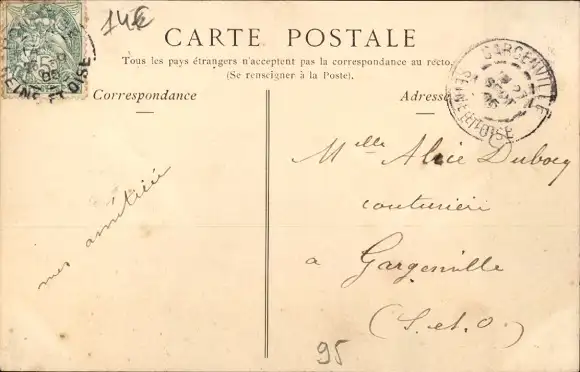 14€
CARTE POSTALE
Tous les pays étrangers n'acceptent pas la correspondance au recto.
(Se renseigner à la Poste).
Correspondance
Adresse
GARGENVILLE
SEINE-ET-OISE
SEINE ET OISE
Melle Alice Dubocq
couturière
à Gargenville
(S. et. O.)
mes amitiés
95